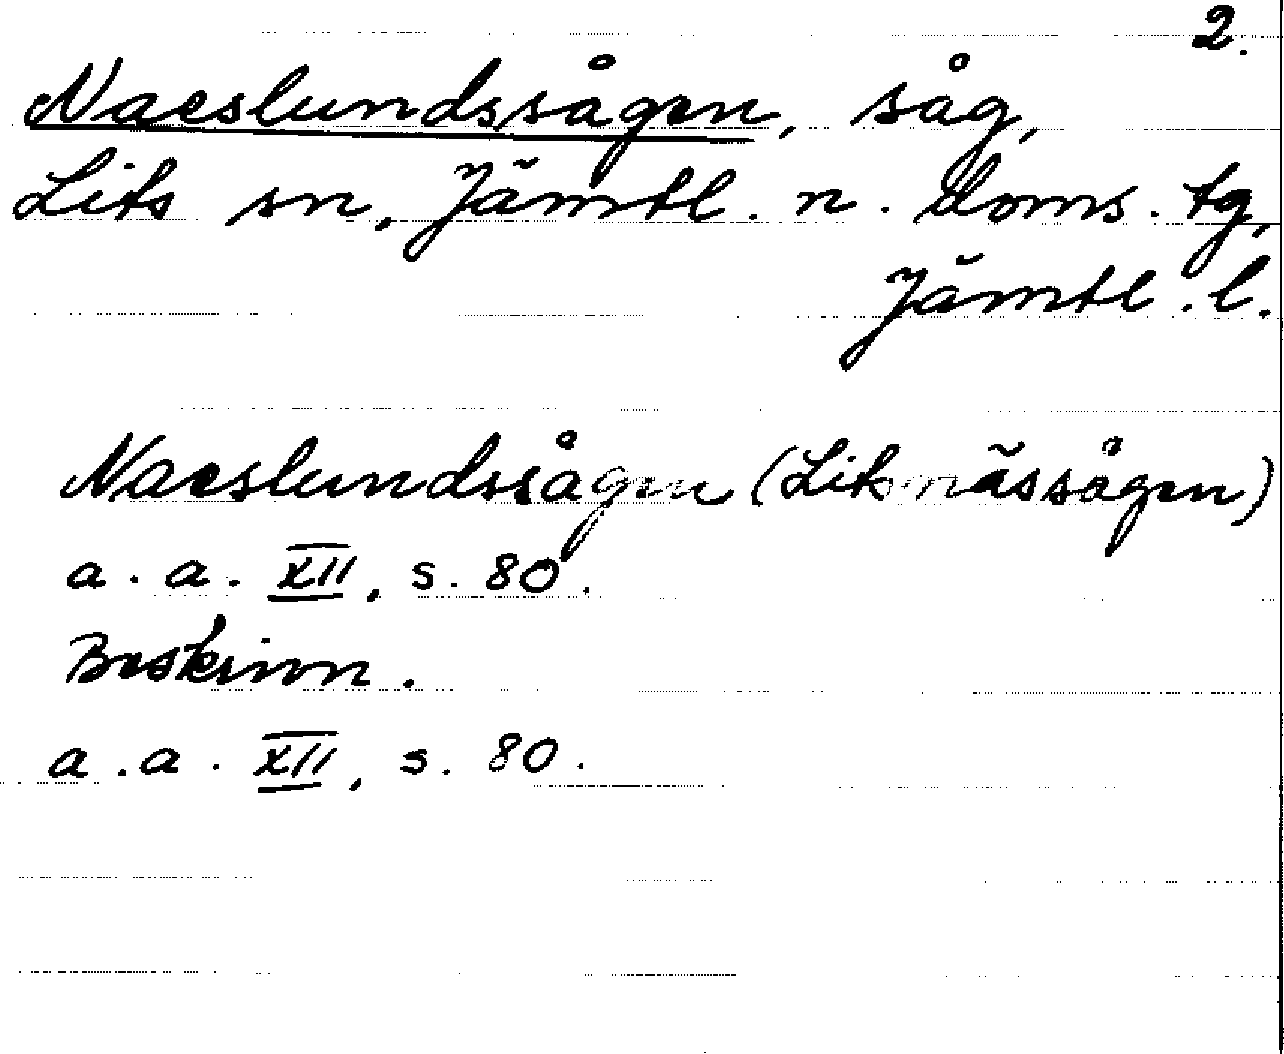 2.
Naeslundssågen, såg,
Lits sn, Jämtl. n. doms. tg,
Jämtl. l.
Naeslundssågen (Litsnässågen)
a. a. XII, s. 80.
Beskrivn.
a. a. XII, s. 80.